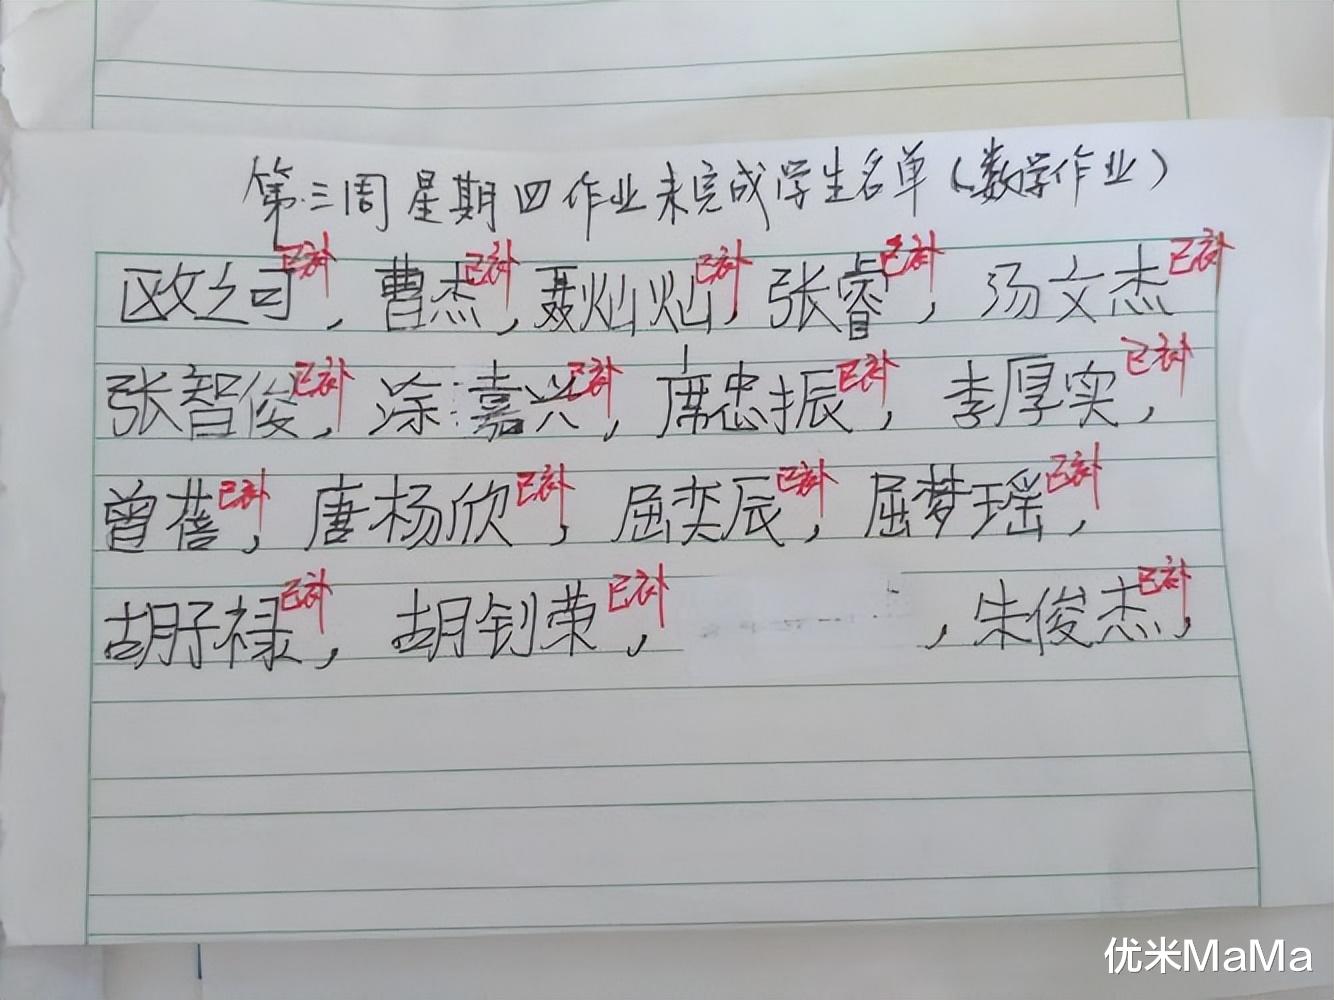 第三周星期四作业未完成学生名单(数学作业)
欧之司已补, 曹杰已补, 聂灿灿已补, 张睿已补, 汤文杰已补
张智俊已补, 涂嘉兴已补, 席忠振已补, 李厚实已补,
曾蓓已补, 唐杨欣已补, 屈奕辰已补, 屈梦瑶已补,
胡子禄已补, 胡钊荣已补, , 朱俊杰已补,
优米MaMa